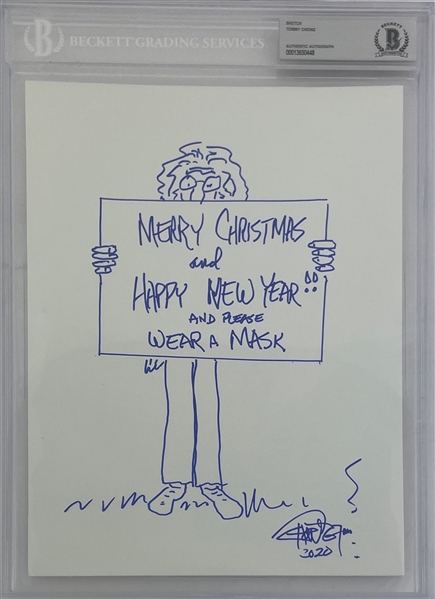 BECKETT GRADING SERVICES
SKETCH
TOMMY CHONG
AUTHENTIC AUTOGRAPH
00013650448
BECKETT
MERRY CHRISTMAS
and
HAPPY NEW YEAR!!
AND PLEASE
WEAR A MASK
2020